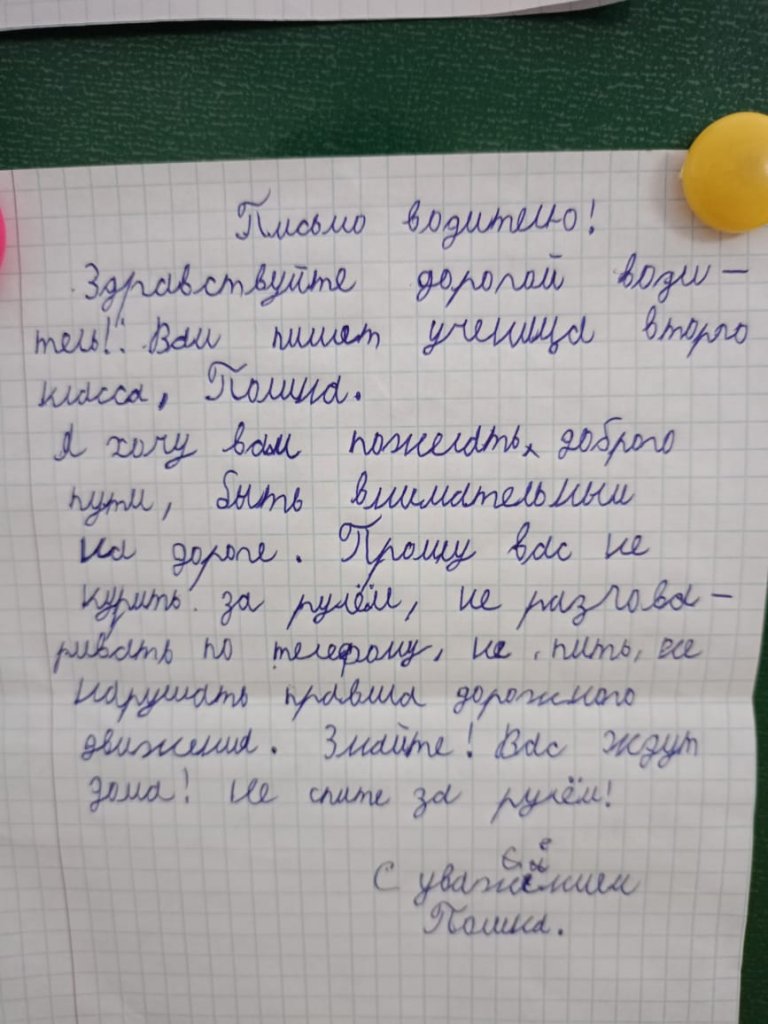 Письмо водителю!
Здравствуйте дорогой води-
тель! Вам пишет ученица второго
класса, Полина.
Я хочу вам пожелать доброго
пути, быть внимательным
на дороге. Прошу вас не
курить за рулём, не разгова-
ривать по телефону, не пить, не
нарушать правила дорожного
движения. Знайте! Вас ждут
дома! Не спите за рулём!
С уважением
Полина.